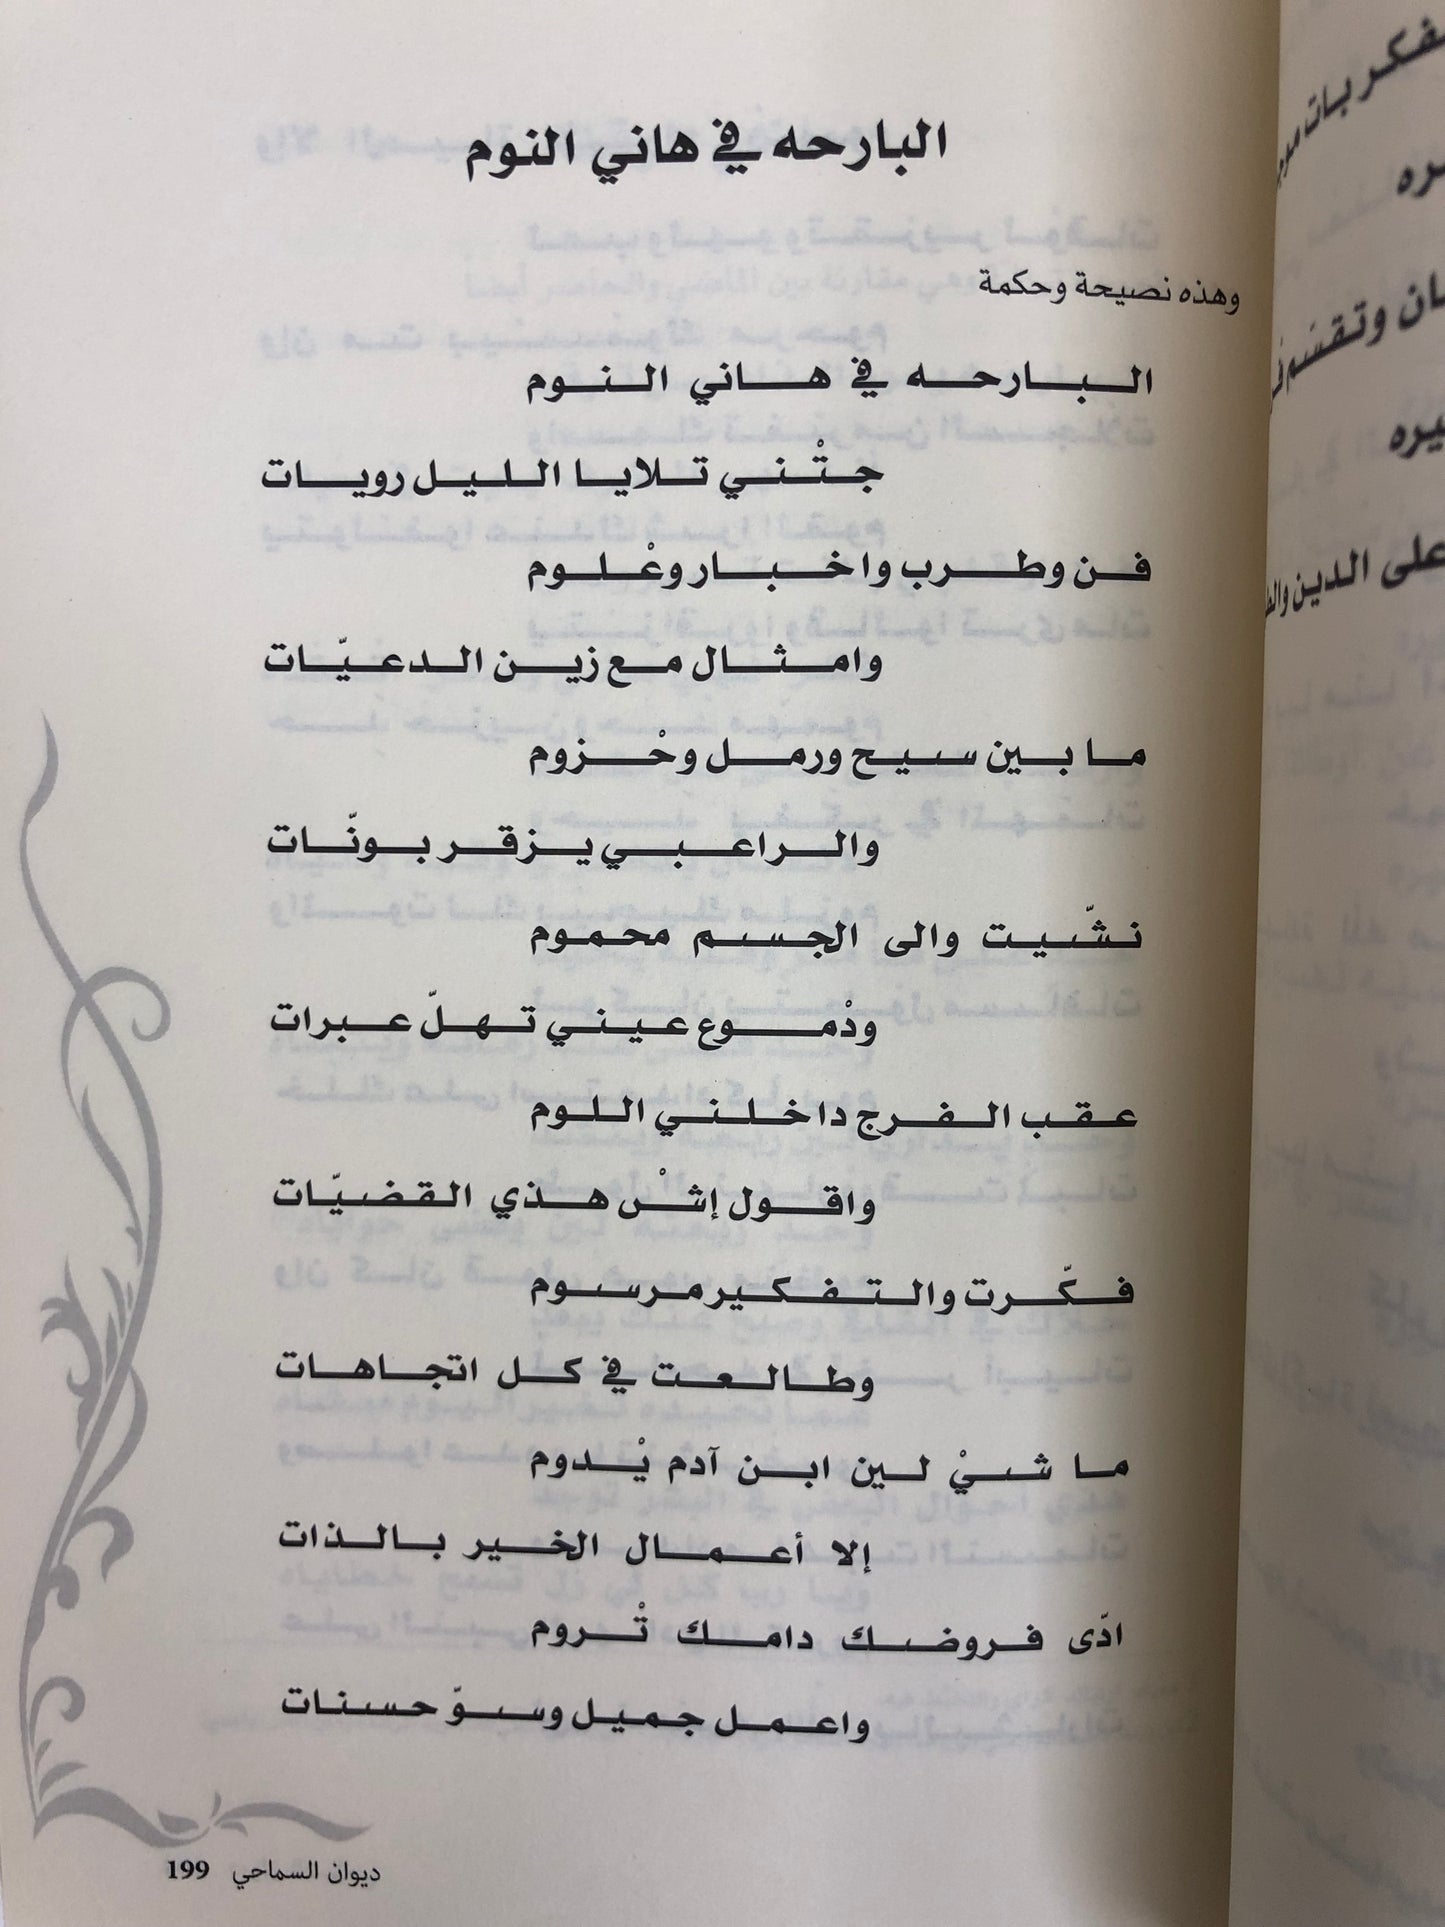 البارحه في هاني النوم
وهذه نصيحة وحكمة
البارحه في هاني النوم
جتْني تلايا الليل رويات
فن وطرب واخبار وعْلوم
وامثال مع زين الدعيّات
ما بين سيح ورمل وحْزوم
والراعبي يزقر بونّات
نشّيت والى الجسم محموم
ودْموع عيني تهلّ عبرات
عقب الفرج داخلني اللوم
واقول إشْ هذي القضيّات
فكّرت والتفكير مرسوم
وطالعت في كل اتجاهات
ما شيْ لين ابن آدم يْدوم
إلا أعمال الخير بالذات
ادّى فروضك دامك تْروم
واعمل جميل وسوّ حسنات
ديوان السماحي 199
ره
يره
على الدين